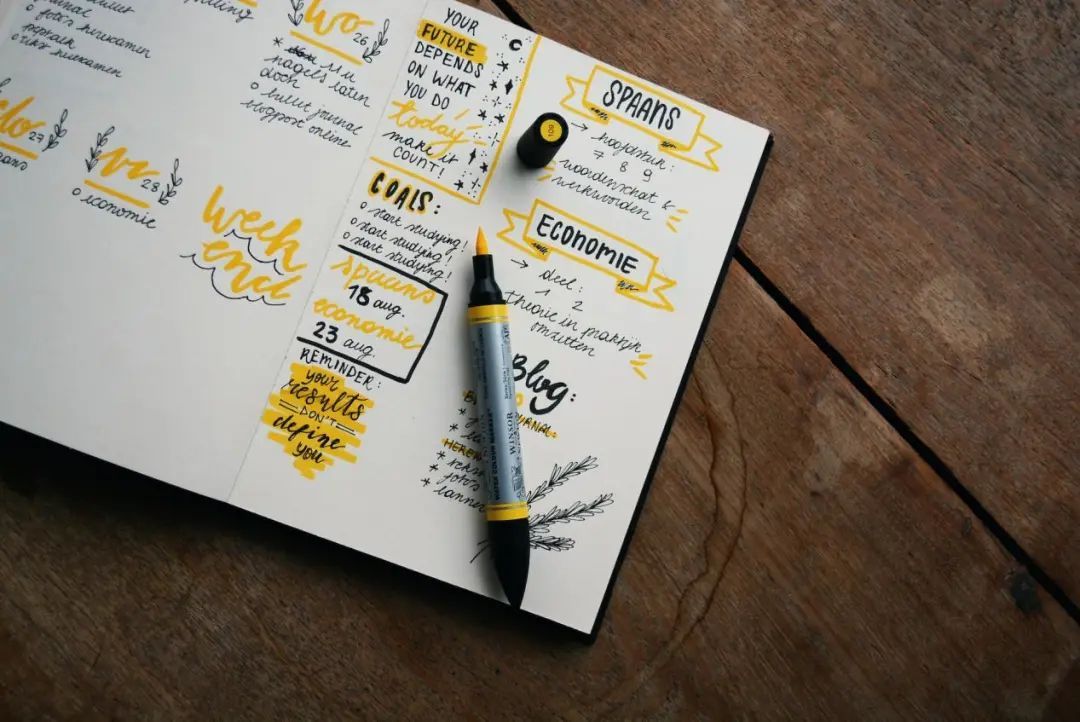 WO 26
nu
nagels laten
doen
o bullet journal
blogpost online
do 27
vr 28
o economie
week
end
YOUR
FUTURE
DEPENDS
ON WHAT
YOU DO
today
make it
COUNT!
GOALS:
o start studying!
o start studying!
o start studying!
spaans
18 aug.
economie
23 aug.
REMINDER:
your
results
DON'T
define
you
109
SPAANS
→ hoofdstuk:
7 8 9
woordenschat &
werkwoorden
ECONOMIE
→ deel:
1 2
theorie in praktijk
omzetten
Blog:
WATER COLOUR MARKER
WINSOR